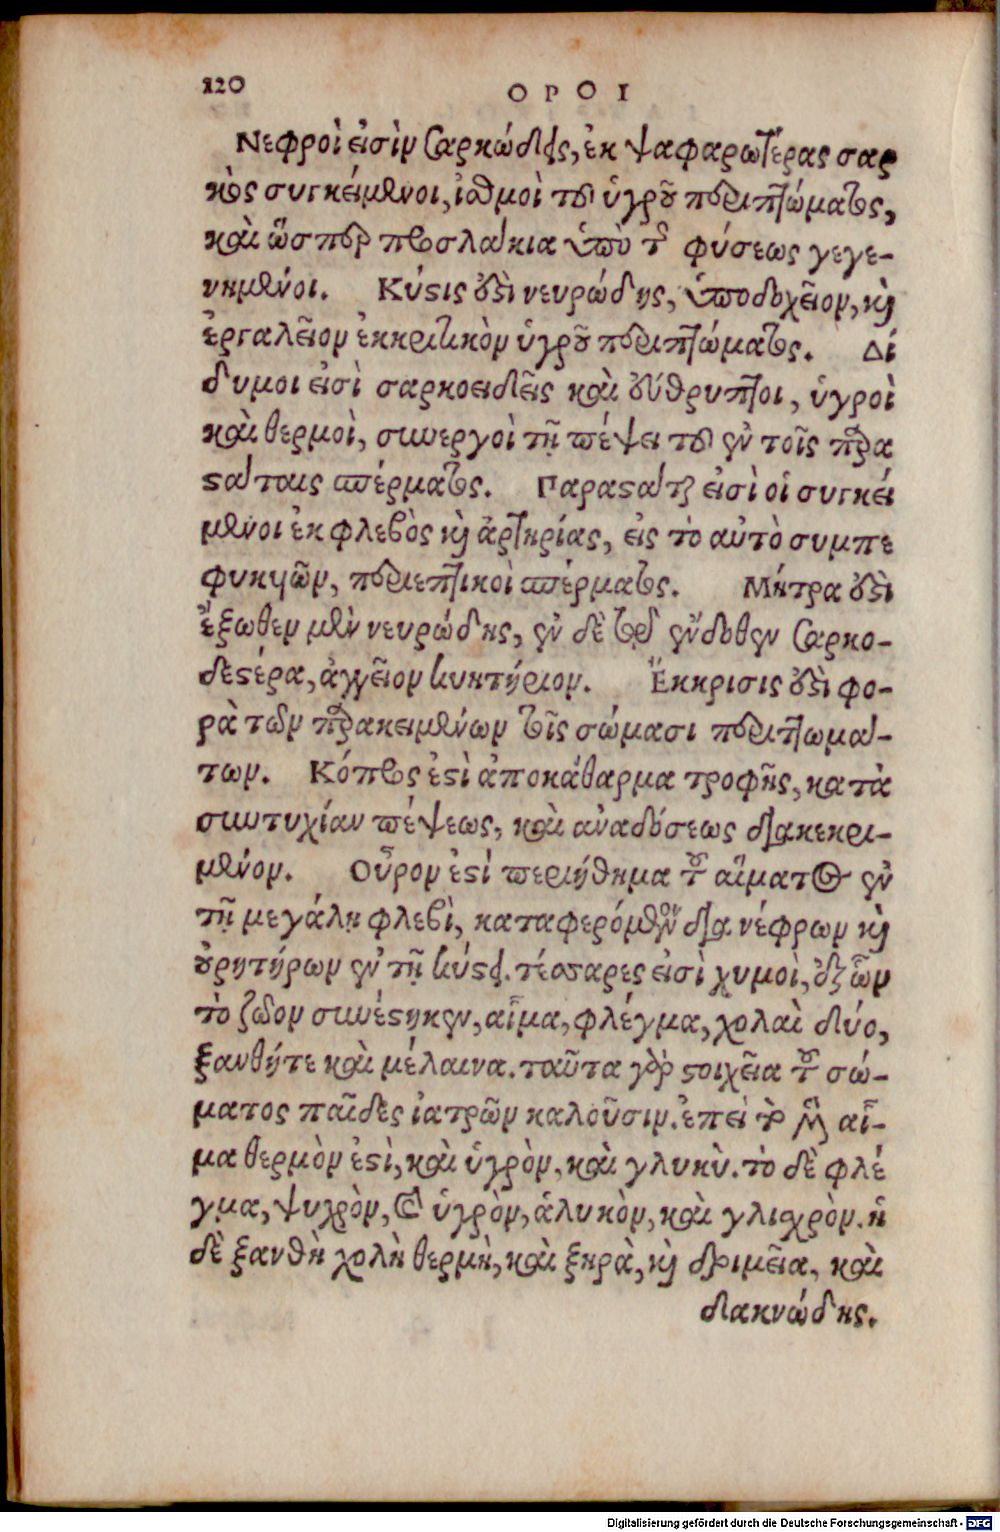 120
ΟΡΟΙ
Νεφροὶ εἰσὶν σαρκώδεις, ἐκ ψαφαρωτέρας σαρ
κὸς συγκείμενοι, ἰσθμοὶ τοῦ ὑγροῦ περιττώματος,
καὶ ὥσπερ προσλάκια ὑπὸ τῆς φύσεως γεγε-
νημένοι. Κύστις ἐστὶ νευρώδης, ὑποδοχεῖον, καὶ
ἐργαλεῖον ἐκκριτικὸν ὑγροῦ περιττώματος. Δί
δυμοι εἰσὶ σαρκοειδεῖς καὶ εὔθρυπτοι, ὑγροὶ
καὶ θερμοὶ, συνεργοὶ τῇ πέψει τοῦ ἐν τοῖς παρα
στάταις σπέρματος. Παραστάται εἰσὶ οἱ συγκεί
μενοι ἐκ φλεβὸς καὶ ἀρτηρίας, εἰς τὸ αὐτὸ συμπε
φυκυῶν, περιεπτικοὶ σπέρματος. Μήτρα ἐστὶ
ἔξωθεν μὲν νευρώδης, ἐν δὲ τῷ ἔνδοθεν σαρκο-
δεστέρα, ἀγγεῖον κυητήριον. Ἔκκρισις ἐστὶ φο-
ρὰ τῶν παρακειμένων τοῖς σώμασι περιττωμά-
των. Κόπρος ἐστὶ ἀποκάθαρμα τροφῆς, κατὰ
συντυχίαν πέψεως, καὶ ἀναδόσεως διακεκρι-
μένον. Οὖρον ἐστὶ περιήθημα τοῦ αἵματος ἐν
τῇ μεγάλῃ φλεβὶ, καταφερόμενον διὰ νέφρων καὶ
οὐρητήρων ἐν τῇ κύστει. τέσσαρες εἰσὶ χυμοὶ, ἐξ ὧν
τὸ ζῶον συνέστηκεν, αἷμα, φλέγμα, χολαὶ δύο,
ξανθήτε καὶ μέλαινα. ταῦτα γὰρ στοιχεῖα τοῦ σώ-
ματος παῖδες ἰατρῶν καλοῦσιν. ἐπεὶ τὸ μὲν αἷ-
μα θερμὸν ἐστὶ, καὶ ὑγρὸν, καὶ γλυκὺ. τὸ δὲ φλέ
γμα, ψυχρὸν, καὶ ὑγρὸν, ἁλυκὸν, καὶ γλισχρὸν. ἡ
δὲ ξανθὴ χολὴ θερμὴ, καὶ ξηρὰ, καὶ δριμεῖα, καὶ
διακνώδης.
Digitalisierung gefördert durch die Deutsche Forschungsgemeinschaft - DFG